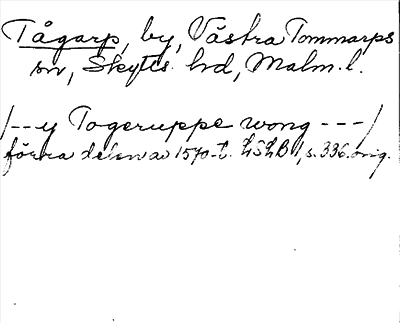 Tågarp, by, Västra Tommarps
sn, Skytts hd, Malm. l.
/--y Togeruppe wong ---/
förra delen av 1570-t. LSLB 1, s. 336. orig.